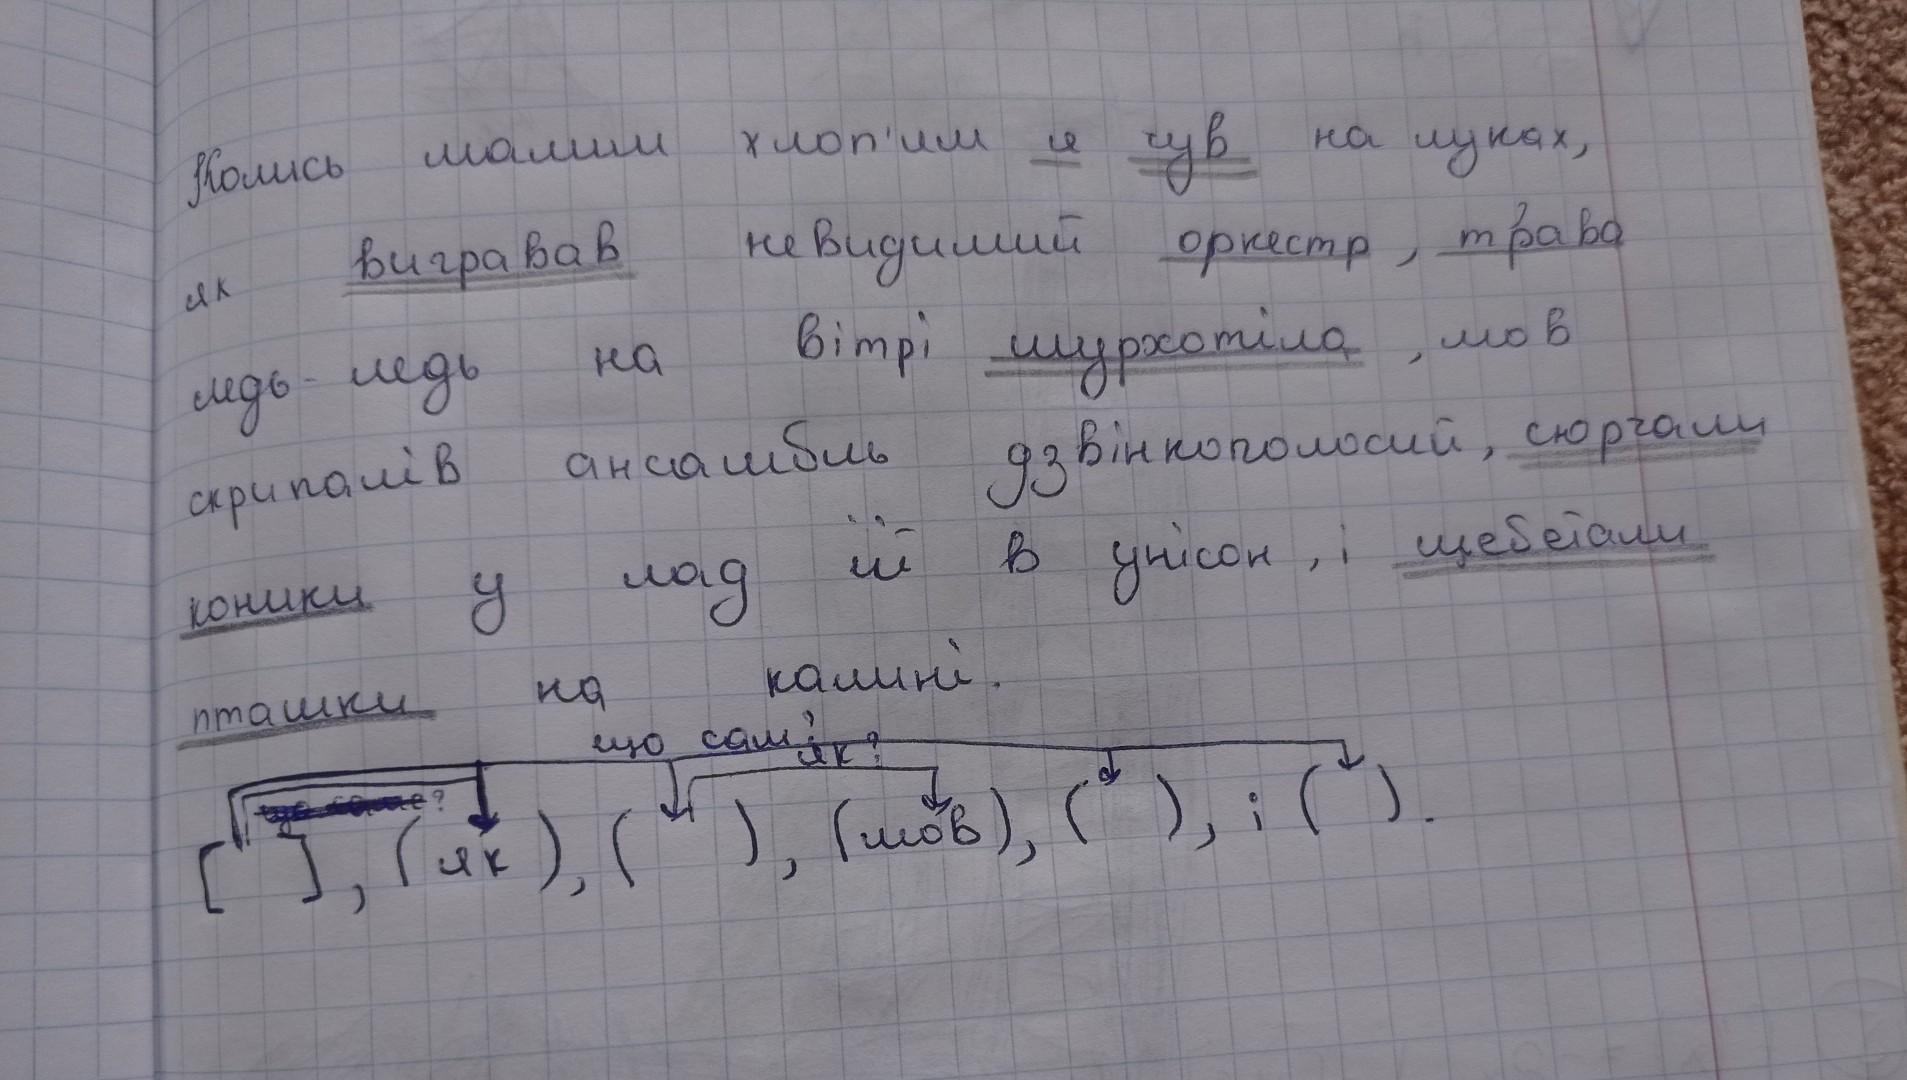 Колись малим хлоп'ям я чув на луках,
як вигравав невидимий оркестр, трава
ледь-ледь на вітрі шурхотіла, мов
скрипалів ансамбль дзвінкоголосий, сюрчали
коники у лад їй в унісон, і щебетали
пташки на калині.
що саме?
як?
[ ], (як), ( ), (мов), ( ), і ( ).